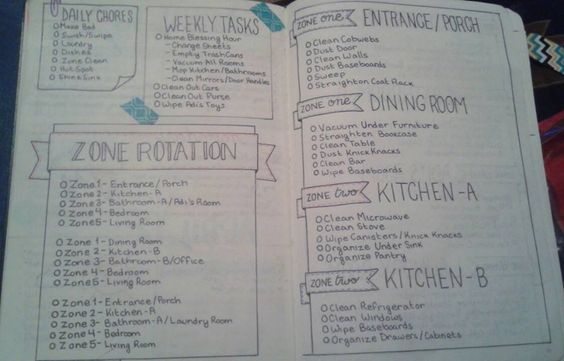 DAILY CHORES
Make Bed
Swish/Swipe
Laundry
Dishes
Zone Clean
Hot Spot
Shine Sink
WEEKLY TASKS
Home Blessing Hour
- Change Sheets
- Empty Trash Cans
- Vacuum All Rooms
- Mop Kitchen/Bathrooms
- Clean Mirrors/Door Handles
Clean Out Cars
Clean Out Purse
Wipe Adi's Toys
ZONE ROTATION
Zone 1- Entrance/Porch
Zone 2- Kitchen-A
Zone 3- Bathroom-A/Adi's Room
Zone 4- Bedroom
Zone 5- Living Room
Zone 1- Dining Room
Zone 2- Kitchen-B
Zone 3- Bathroom-B/Office
Zone 4- Bedroom
Zone 5- Living Room
Zone 1- Entrance/Porch
Zone 2- Kitchen-A
Zone 3- Bathroom-A/Laundry Room
Zone 4- Bedroom
Zone 5- Living Room
ZONE one ENTRANCE/PORCH
Clean Cobwebs
Dust Door
Clean Walls
Dust Baseboards
Sweep
Straighton Coat Rack
ZONE one DINING ROOM
Vacuum Under Furniture
Straighten Bookcase
Clean Table
Dust Knick Knacks
Clean Bar
Wipe Baseboards
ZONE two KITCHEN-A
Clean Microwave
Clean Stove
Wipe Canisters/Knick Knacks
Organize Under Sink
Organize Pantry
ZONE two KITCHEN-B
Clean Refrigerator
Clean Windows
Wipe Baseboards
Organize Drawers/Cabinets